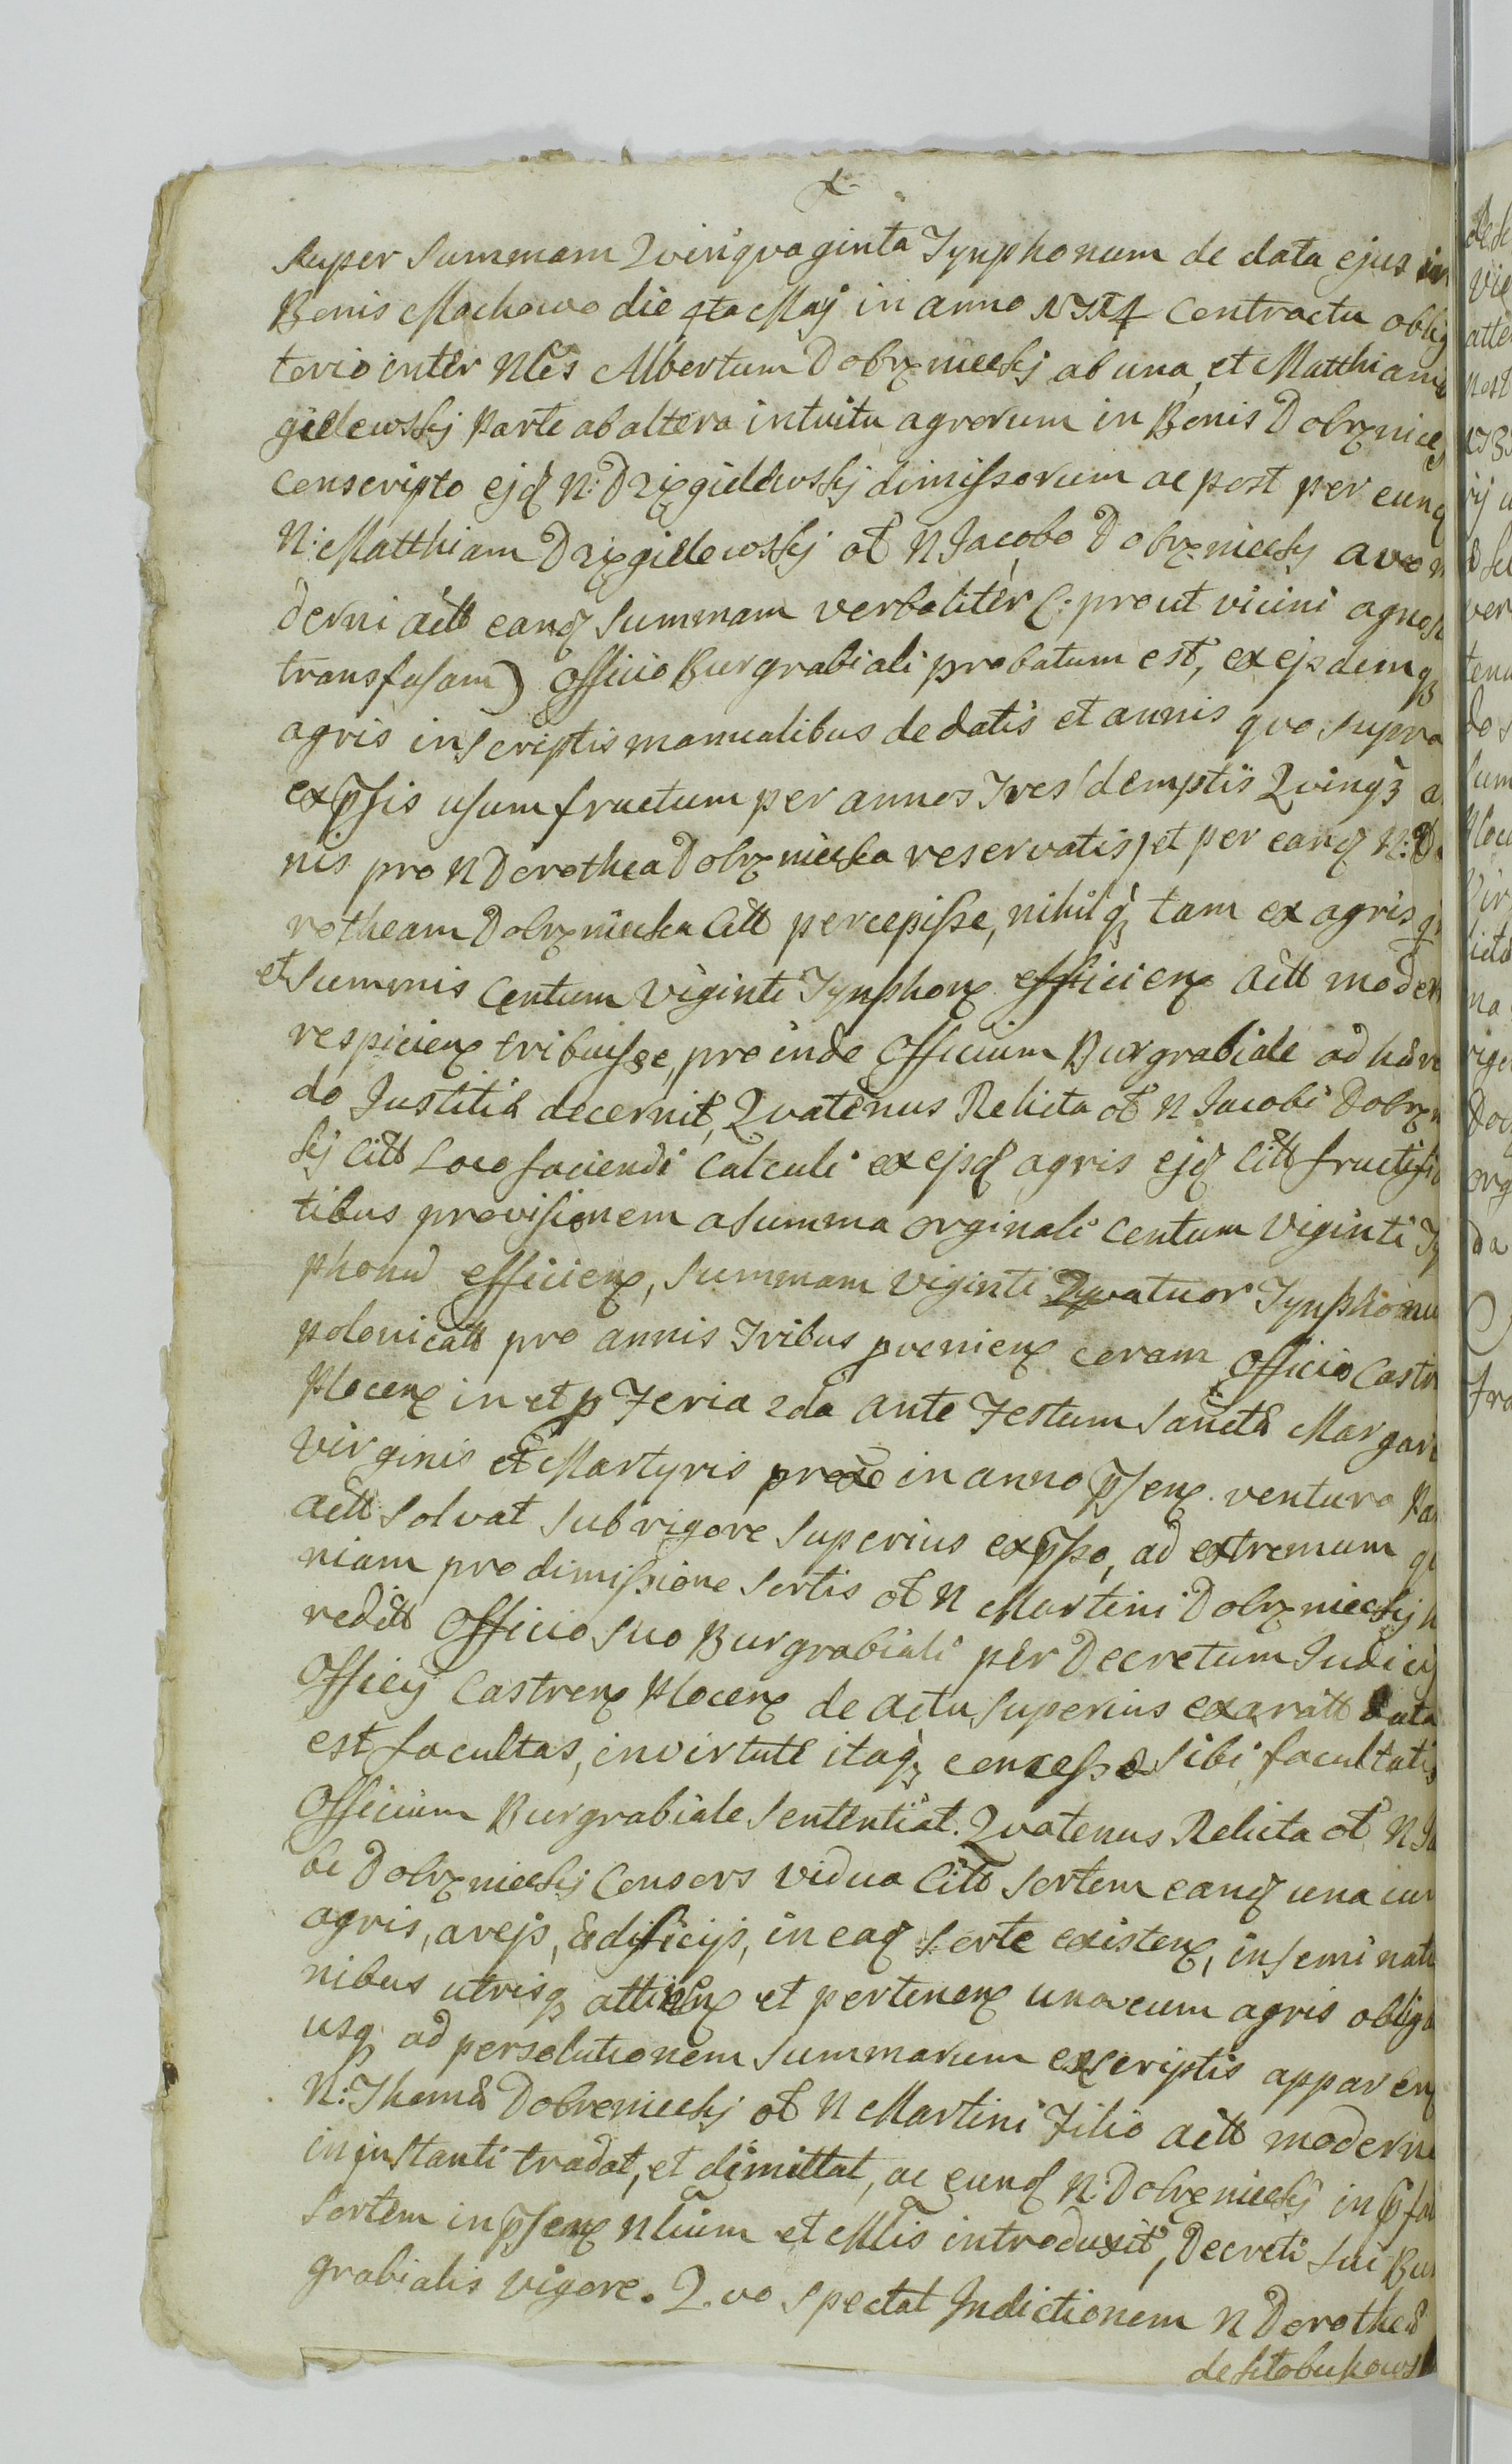 Super Summam Qvinqvaginta Tynphonum de data ejus in
Bonis Machowo die 4ta Maj in anno Contractu oblig
torio inter Nles Albertum Dobrznieckj ab una, et Matthiam
gielewskj Parte ab altera intuitu agrorum in Bonis Dobrznice
conscripto ejq N: Dzięgielewskj dimissorum ac post per eunq
N: Matthiam Dzięgielewskj ol N Jacobo Dobrznieckj avo m
derni actt eanq Summam verbaliter (: prout vicini agnos
transfusam) Officio Burgrabiali probatum est, ex ejsdemqz
agris inscriptis manualibus de datis et annis quo supra
expssis usum fructum per annos Tres demptis Qvinqz a
nis pro N Dorothea Dobrzniecka reservatis, et per eanq N: Do
rotheam Dobrzniecka Citt percepisse, nihilqz tam ex agris q
et Summis Centum Viginti Tynphon efficien actt modern
respicien tribuisse, pro inde Officium Burgrabiale adhære
do Justitiæ decernit, Qvatenus Relicta ol N Jacobi Dobrzn
skj Citt Loco faciendi Calculi ex ejsq agris ejq Citt fructifi
tibus provisionem a Summa orginali Centum Viginti Ty
phonu efficien, Summam Viginti Qvatuor Tynphonu
polonicatt pro annis Tribus pvenien coram Officio Castr
Plocen in et p Feria 2da ante Festum Sanctæ Margari
Virginis et Martyris proxe in anno pssen venturo Par
actt Solvat Sub rigore Superius expsso, ad extremum qu
niam pro dimissione Sortis ol N Martini Dobrznieckj h
reditt Officio Suo Burgrabiali per Decretum Judicij
Officij Castren Plocen de actu Superius exaratt data
est facultas, in virtute itaqz concessæ Sibi facultatis
Officium Burgrabiale Sententiat. Qvatenus Relicta ol N Ja
bi Dobrznieckj Consors vidua Citt Sortem eanq una cum
agris, arejs, ædificijs, in eaq Sorte existen, inseminati
nibus utrisqz attinen et pertinen una cum agris obliga
usqz ad persolutionem Summarum exscriptis apparen
N: Thomæ Dobrznieckj ol N Martini Filio actt moderno
in instanti tradat, et dimittat, ac eunq N: Dobrznieckj in pfa
Sortem in pssen Nlium et Mlis introduxit, Decreti Sui Bur
grabialis vigore. Qvo Spectat Indictionem N Dorotheæ